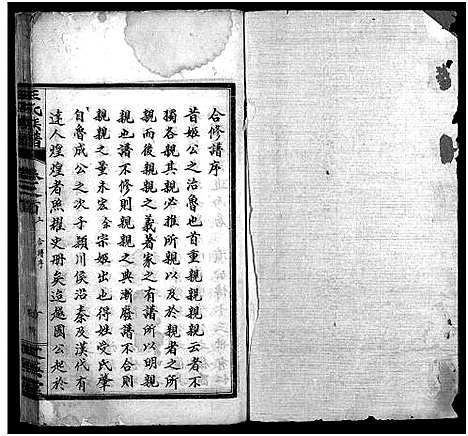 合修譜序
昔姬公之治魯也首重親親親云者不
獨各親其親必推所親以及於親者之所
親而後親親之義著家之有譜所以明親
親也譜不修則親親之典漸廢譜不合則
親親之量未宏余宗姬出也得姓受氏肇
自魯成公之次子頴川侯沿秦及漢代有
達人煌煌者照耀史册矣迨越國公起於
氏族譜
卷之首
合譜序